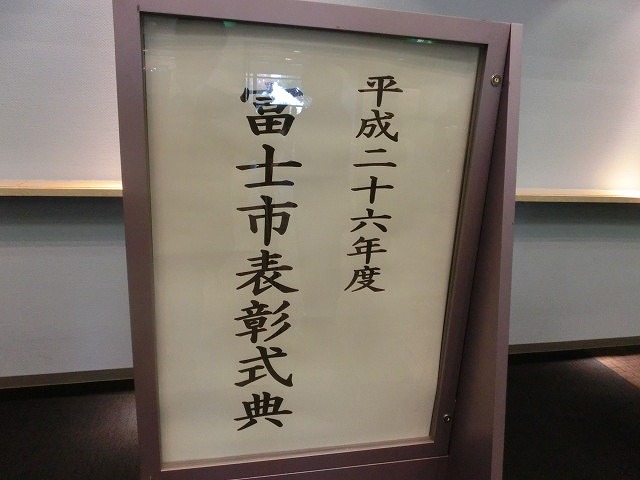 平成二十六年度
富士市表彰式典